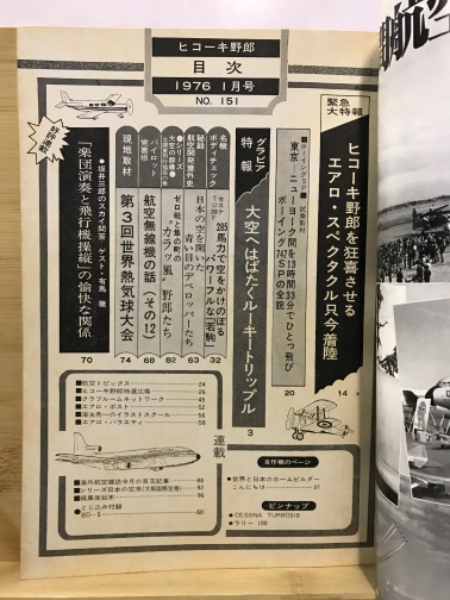 ヒコーキ野郎
目次
1976 1月号
NO. 151
緊急
大特報
ヒコーキ野郎を狂喜させる
エアロ・スペクタクル只今着陸
14
■ボーイングSP■ 試乗取材
東京—ニューヨーク間を13時間33分でひとっ飛び
ボーイング747SPの全貌
20
グラビア
特報
大空へはばたくルーキートリップル
3
名機
ボディチェック
セスナ
285馬力で空をかけのぼる
パワーフルな「若駒」
32
秘録
航空開発意外史
日本の空を開いた
青い目のデベロッパーたち
63
●シリーズ
大空の群像●
ゼロ戦と隼の町の
“カラッ風”野郎たち
82
パイロット
航空無線機の話(その12)
68
現地取材
第3回世界熱気球大会
74
好評連載
●坂井三郎のスカイ問答 ゲスト・有馬 徹
『楽団演奏と飛行機操縦』の愉快な関係
70
連載
■航空トピックス 24
■ヒコーキ野郎特選広場 26
■クラブルームネットワーク 45
■エアロ・ポスト 52
■イラストスクール 56
■エアロ・バラエティ 58
■海外航空雑誌今月の目玉記事 88
■シリーズ日本の空港(大阪国際空港) 92
■編集後記 96
●とじ込み付録
BD-5 60
自作機のページ
●世界と日本のホームビルダー
こんにちは 37
ピンナップ
●CESSNA TURBO310
●ラリー 100